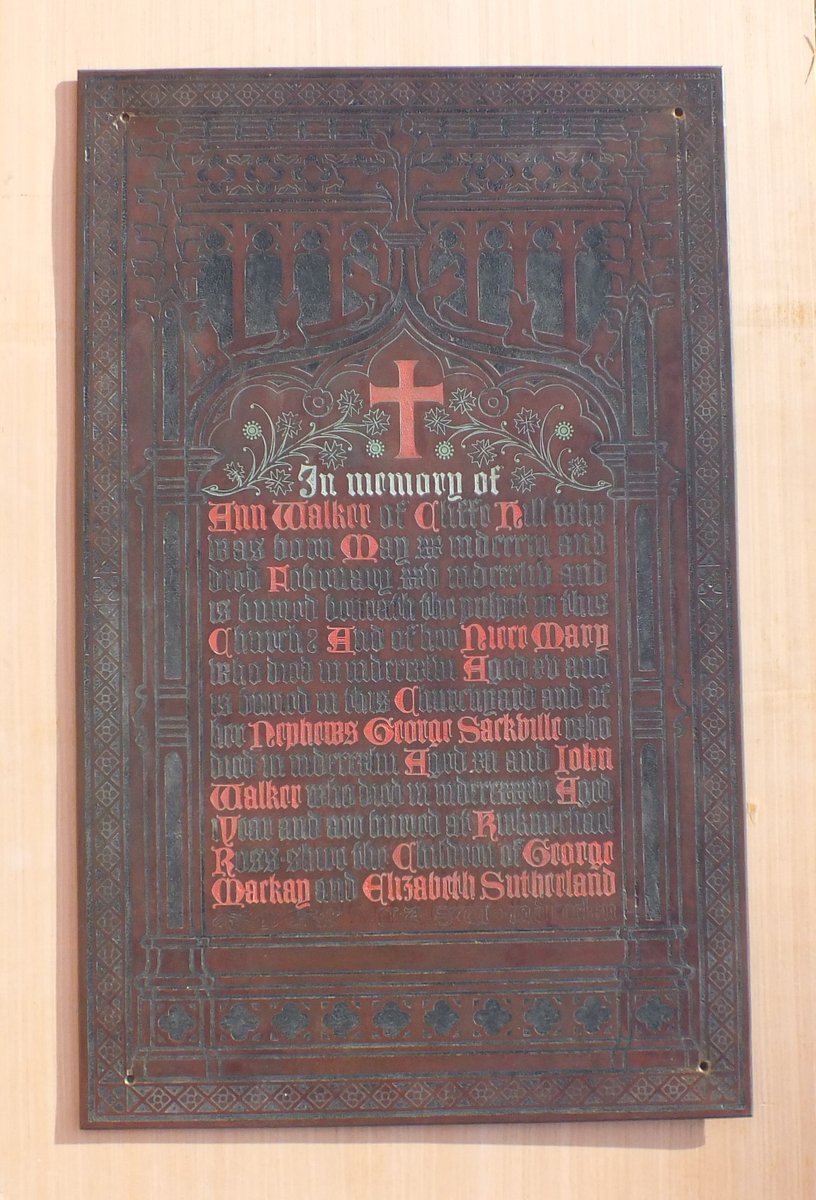 In memory of
Ann Walker of Cliffe Hill who
was born May xx mdccciii and
died February xxv mdcccliv and
is buried beneath the pulpit in this
Church : And of her Niece Mary
who died in mdcccxlv Aged xv and
is buried in this Churchyard and of
her Nephews George Sackville who
died in mdcccxliii Aged xii and John
Walker who died in Aged
Year and are buried at Kirkmichael
Ross-shire the Children of George
Mackay and Elizabeth Sutherland